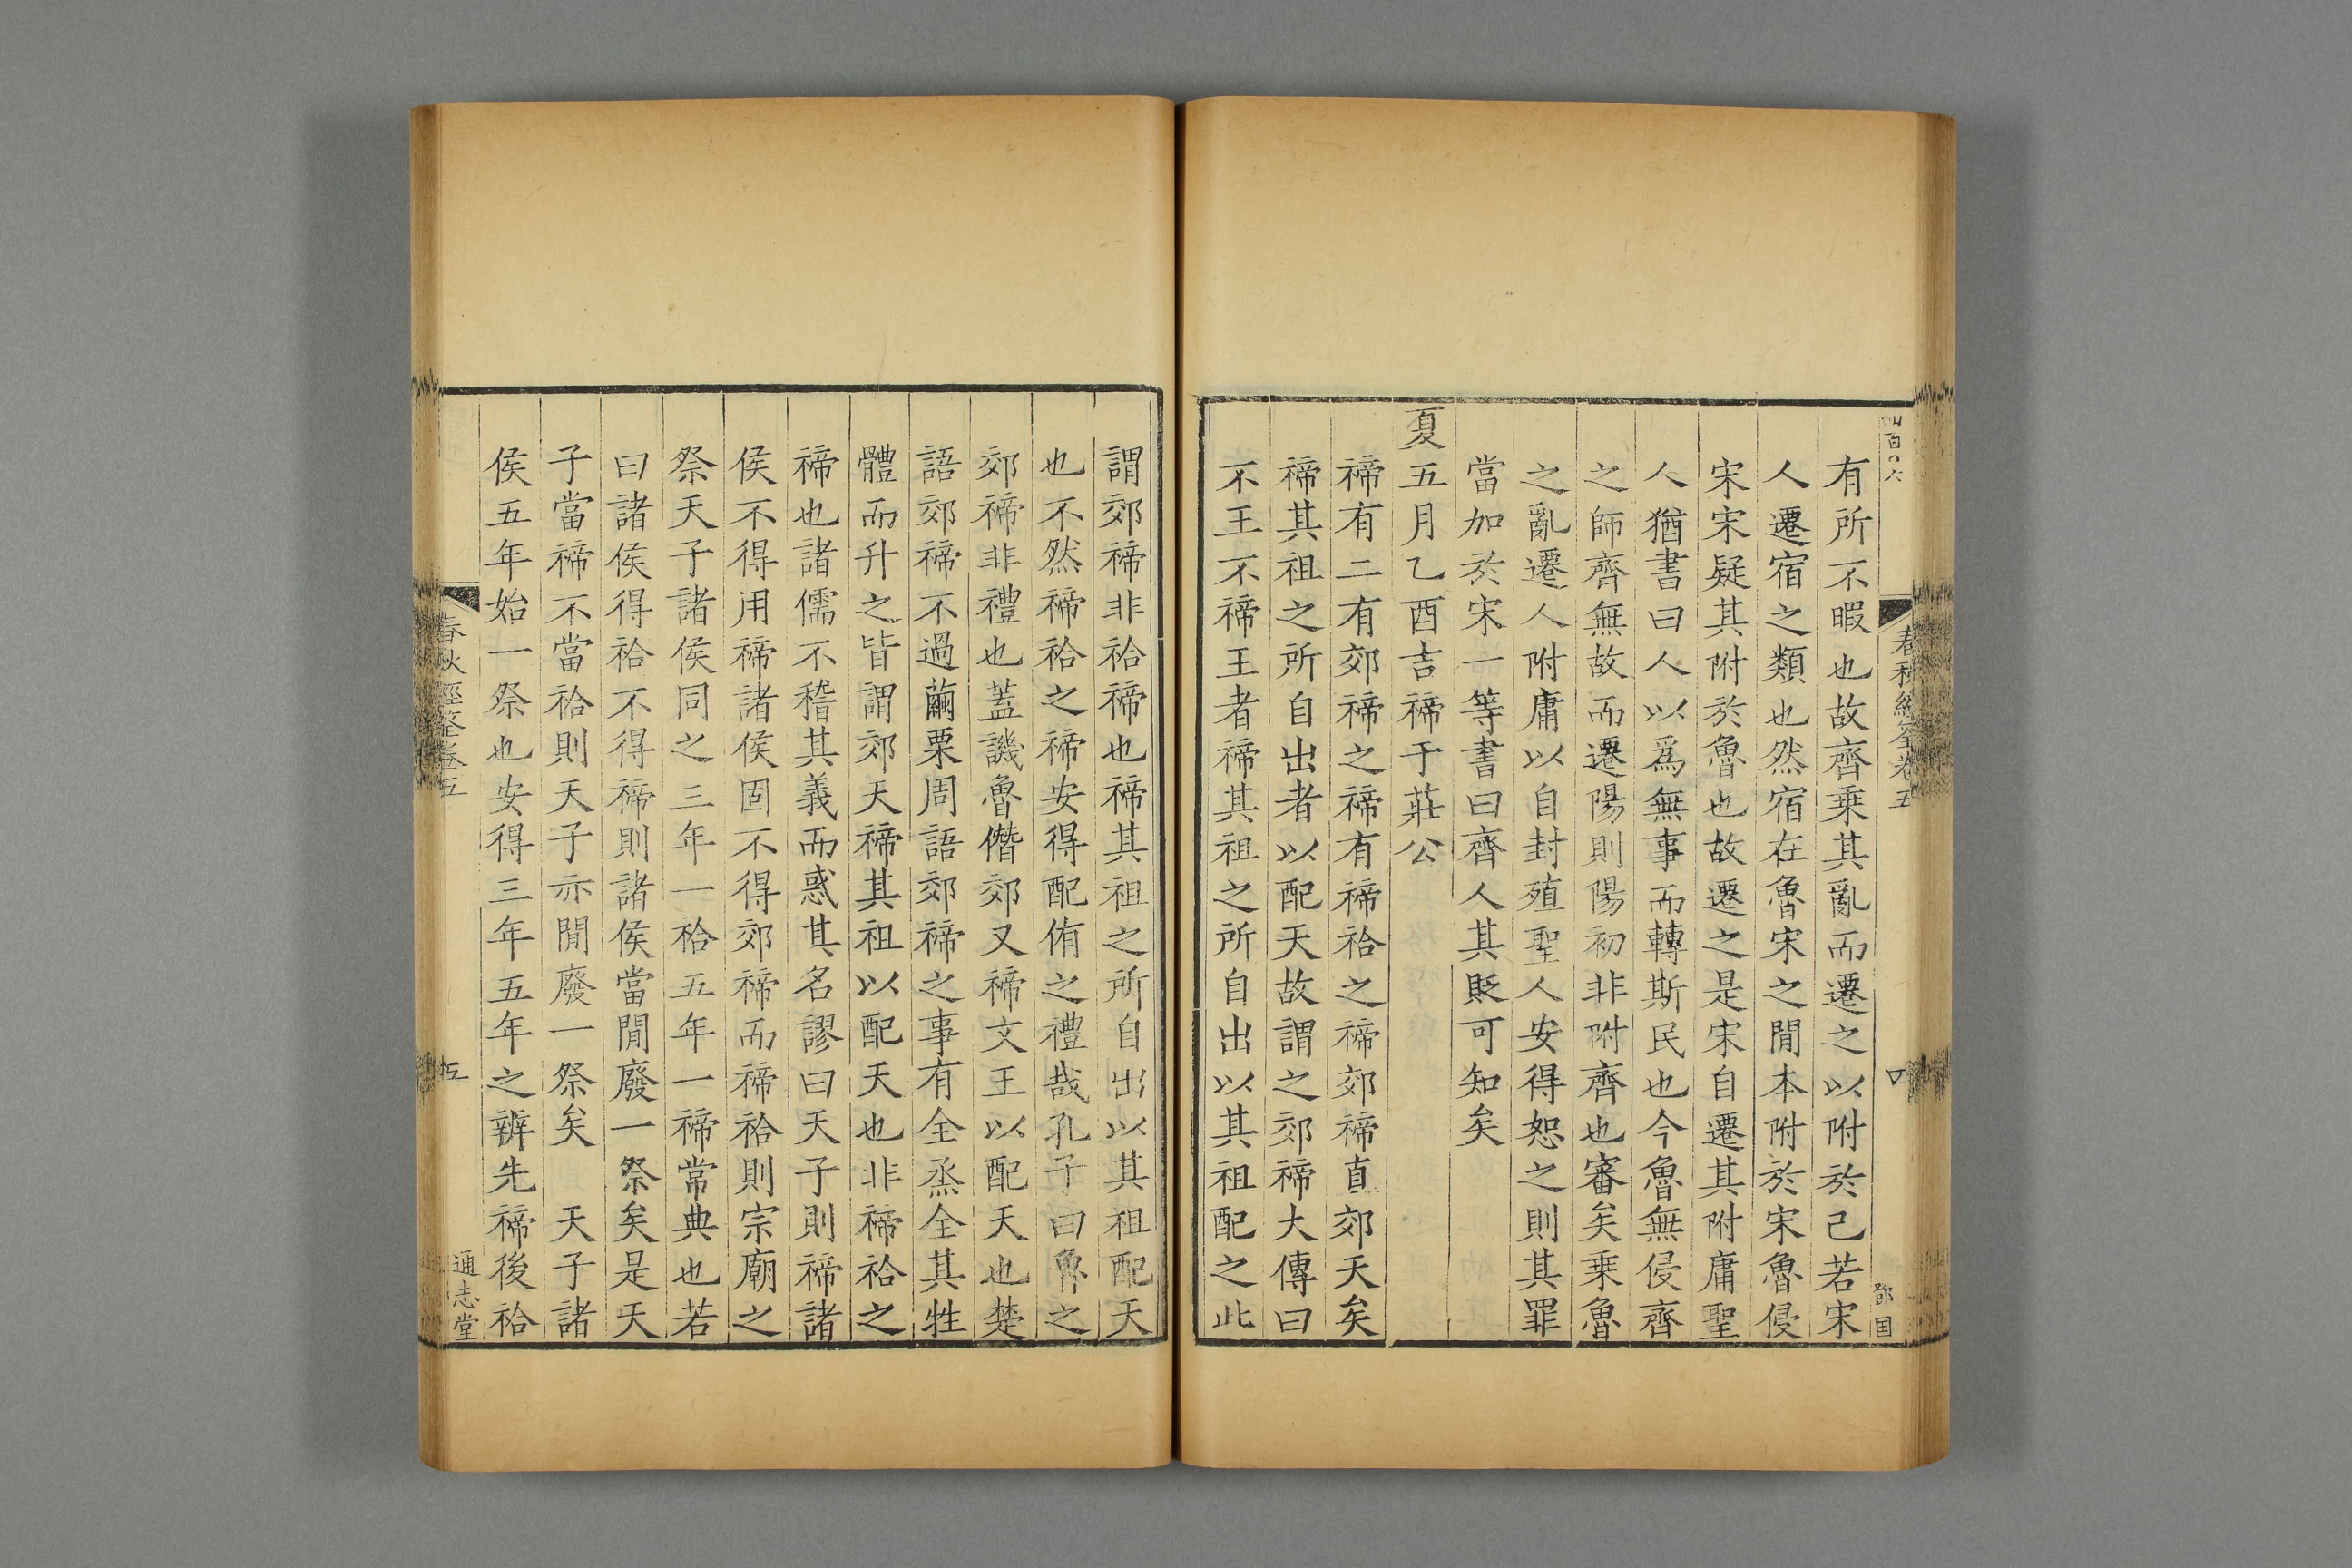 有所不暇也故齊乗其亂而遷之以附於己若宋
人遷宿之類也然宿在魯宋之閒本附於宋魯侵
宋宋疑其附於魯也故遷之是宋自遷其附庸聖
人猶書曰人以爲無事而轉斯民也今魯無侵齊
之師齊無故而遷陽則陽初非附齊也審矣乗魯
之亂遷人附庸以自封殖聖人安得恕之則其罪
當加於宋一等書曰齊人其貶可知矣
夏五月乙酉吉禘于莊公
禘有二有郊禘之禘有禘祫之禘郊禘直郊天矣
禘其祖之所自出者以配天故謂之郊禘大傳曰
不王不禘王者禘其祖之所自出以其祖配之此
謂郊禘非祫禘也禘其祖之所自出以其祖配天
也不然禘祫之禘安得配侑之禮哉孔子曰魯之
郊禘非禮也蓋譏魯僭郊又禘文王以配天也楚
語郊禘不過繭栗周語郊禘之事有全烝全其牲
體而升之皆謂郊天禘其祖以配天也非禘祫之
禘也諸儒不稽其義而惑其名謬曰天子則禘諸
侯不得用禘諸侯固不得郊禘而禘祫則宗廟之
祭天子諸侯同之三年一祫五年一禘常典也若
曰諸侯得祫不得禘則諸侯當閒廢一祭矣是天
子當禘不當祫則天子亦閒廢一祭矣　天子諸
侯五年始一祭也安得三年五年之辨先禘後祫
春秋經筌卷五
五
通志堂